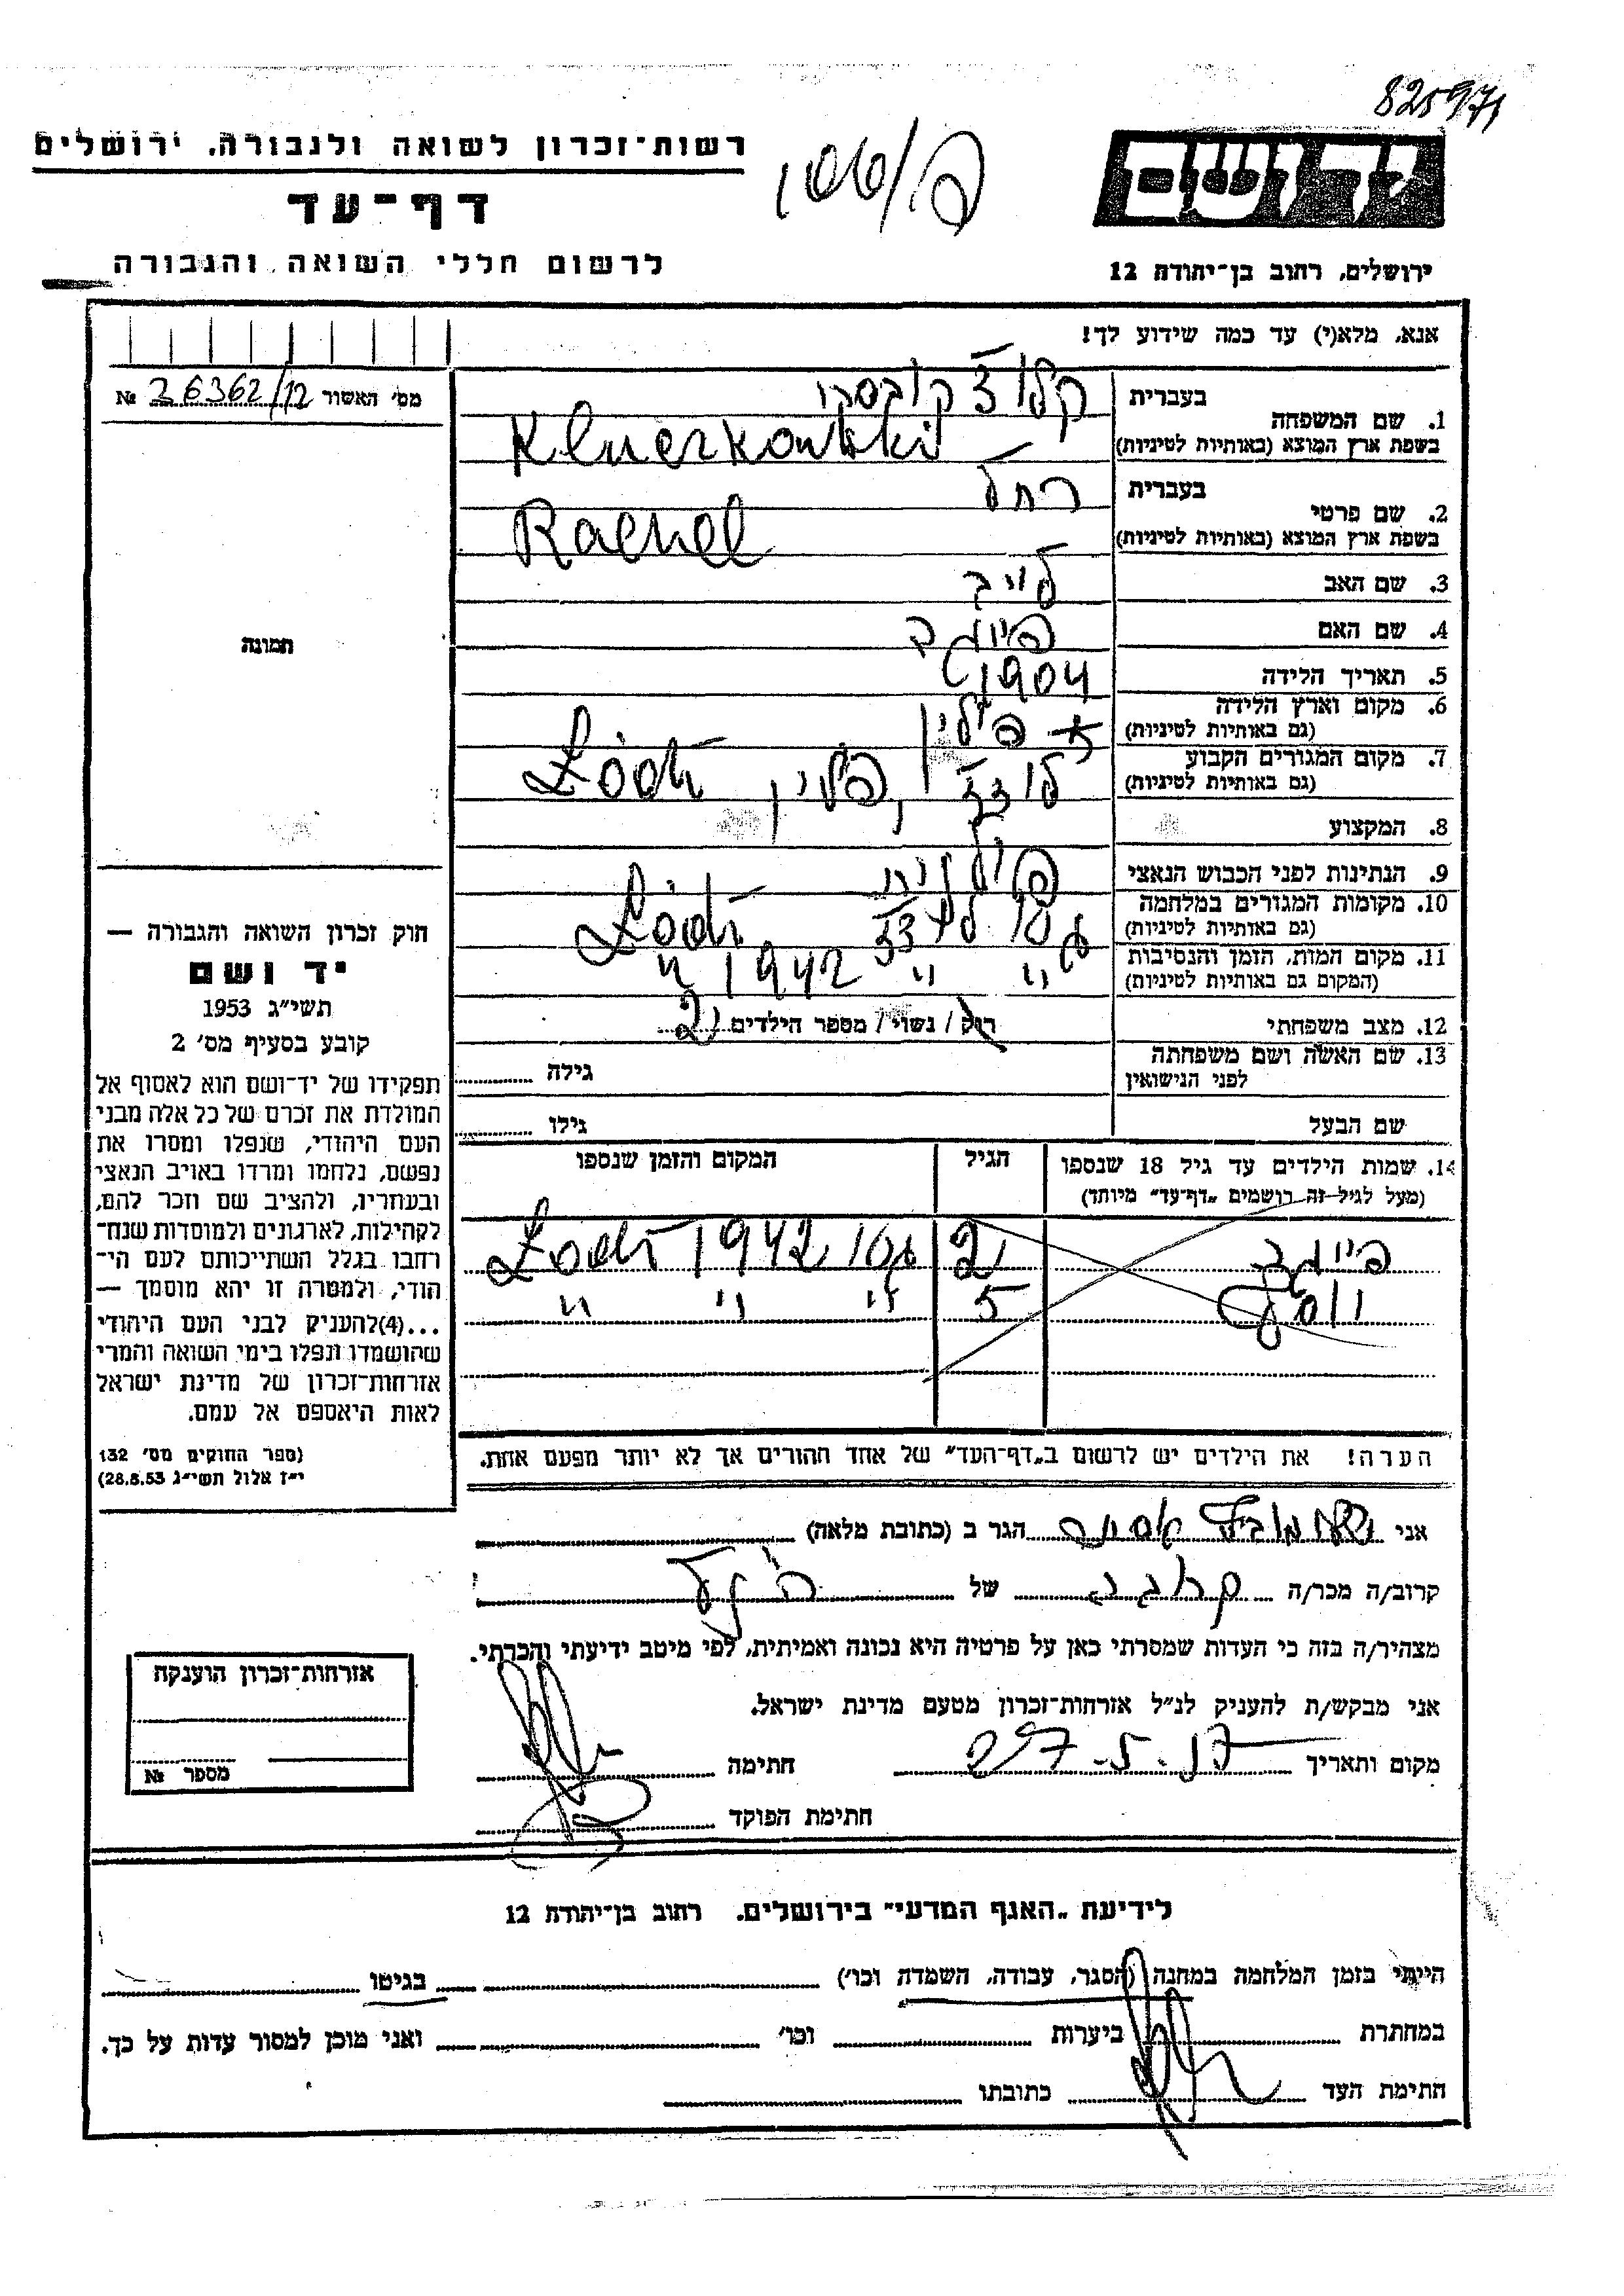 825971
רשות־זכרון לשואה ולגבורה. ירושלים
דף־עד
לרשום חללי השואה והגבורה
יד ושם
ירושלים, רחוב בן־יהודה 12
אנא, מלא(י) עד כמה שידוע לך!
מס' האשור 26362/12 №
1. שם המשפחה
בעברית קלוצקובסקי
בשפת ארץ המוצא (באותיות לטיניות) Kluczkowski
2. שם פרטי
בעברית רחל
בשפת ארץ המוצא (באותיות לטיניות) Rachel
3. שם האב לייב
4. שם האם פייגה
5. תאריך הלידה 1904
6. מקום וארץ הלידה פולין
(גם באותיות לטיניות)
7. מקום המגורים הקבוע לודז, פולין Łódź
(גם באותיות לטיניות)
8. המקצוע
9. הנתינות לפני הכבוש הנאצי פולנית
10. מקומות המגורים במלחמה גטו לודז Łódź
(גם באותיות לטיניות)
11. מקום המות, הזמן והנסיבות " " 1942 "
(המקום גם באותיות לטיניות)
12. מצב משפחתי רוק / נשוי / מספר הילדים 2
13. שם האשה ושם משפחתה גילה
לפני הנישואין
שם הבעל גילו
14. שמות הילדים עד גיל 18 שנספו הגיל המקום והזמן שנספו
(מעל לגיל זה רושמים „דף־עד" מיוחד)
פייגה 2 גטו 1942 Łódź
יוסף 5 " " "
הערה! את הילדים יש לרשום ב„דף־העד" של אחד ההורים אך לא יותר מפעם אחת.
תמונה
חוק זכרון השואה והגבורה —
יד ושם
תשי״ג 1953
קובע בסעיף מס' 2
תפקידו של יד־ושם הוא לאסוף אל
המולדת את זכרם של כל אלה מבני
העם היהודי, שנפלו ומסרו את
נפשם, נלחמו ומרדו באויב הנאצי
ובעוזריו, ולהציב שם וזכר להם,
לקהילות, לארגונים ולמוסדות שנח־
רחבו בגלל השתייכותם לעם הי־
הודי, ולמטרה זו יהא מוסמך —
...(4)להעניק לבני העם היהודי
שהושמדו ונפלו בימי השואה והמרי
אזרחות־זכרון של מדינת ישראל
לאות היאספם אל עמם.
(ספר החוקים מס' 132
י״ז אלול תשי״ג 28.8.53)
אני הגר ב (כתובת מלאה)
קרוב/ה מכר/ה קרובה של
מצהיר/ה בזה כי העדות שמסרתי כאן על פרטיה היא נכונה ואמיתית, לפי מיטב ידיעתי והכרתי.
אני מבקש/ת להעניק לנ״ל אזרחות־זכרון מטעם מדינת ישראל.
מקום ותאריך חתימה
חתימת הפוקד
אזרחות־זכרון הוענקה
מספר №
לידיעת „האגף המדעי" בירושלים. רחוב בן־יהודה 12
הייתי בזמן המלחמה במחנה (הסגר, עבודה, השמדה וכו') בגיטו
במחתרת ביערות וכו' ואני מוכן למסור עדות על כך.
חתימת העד כתובתו